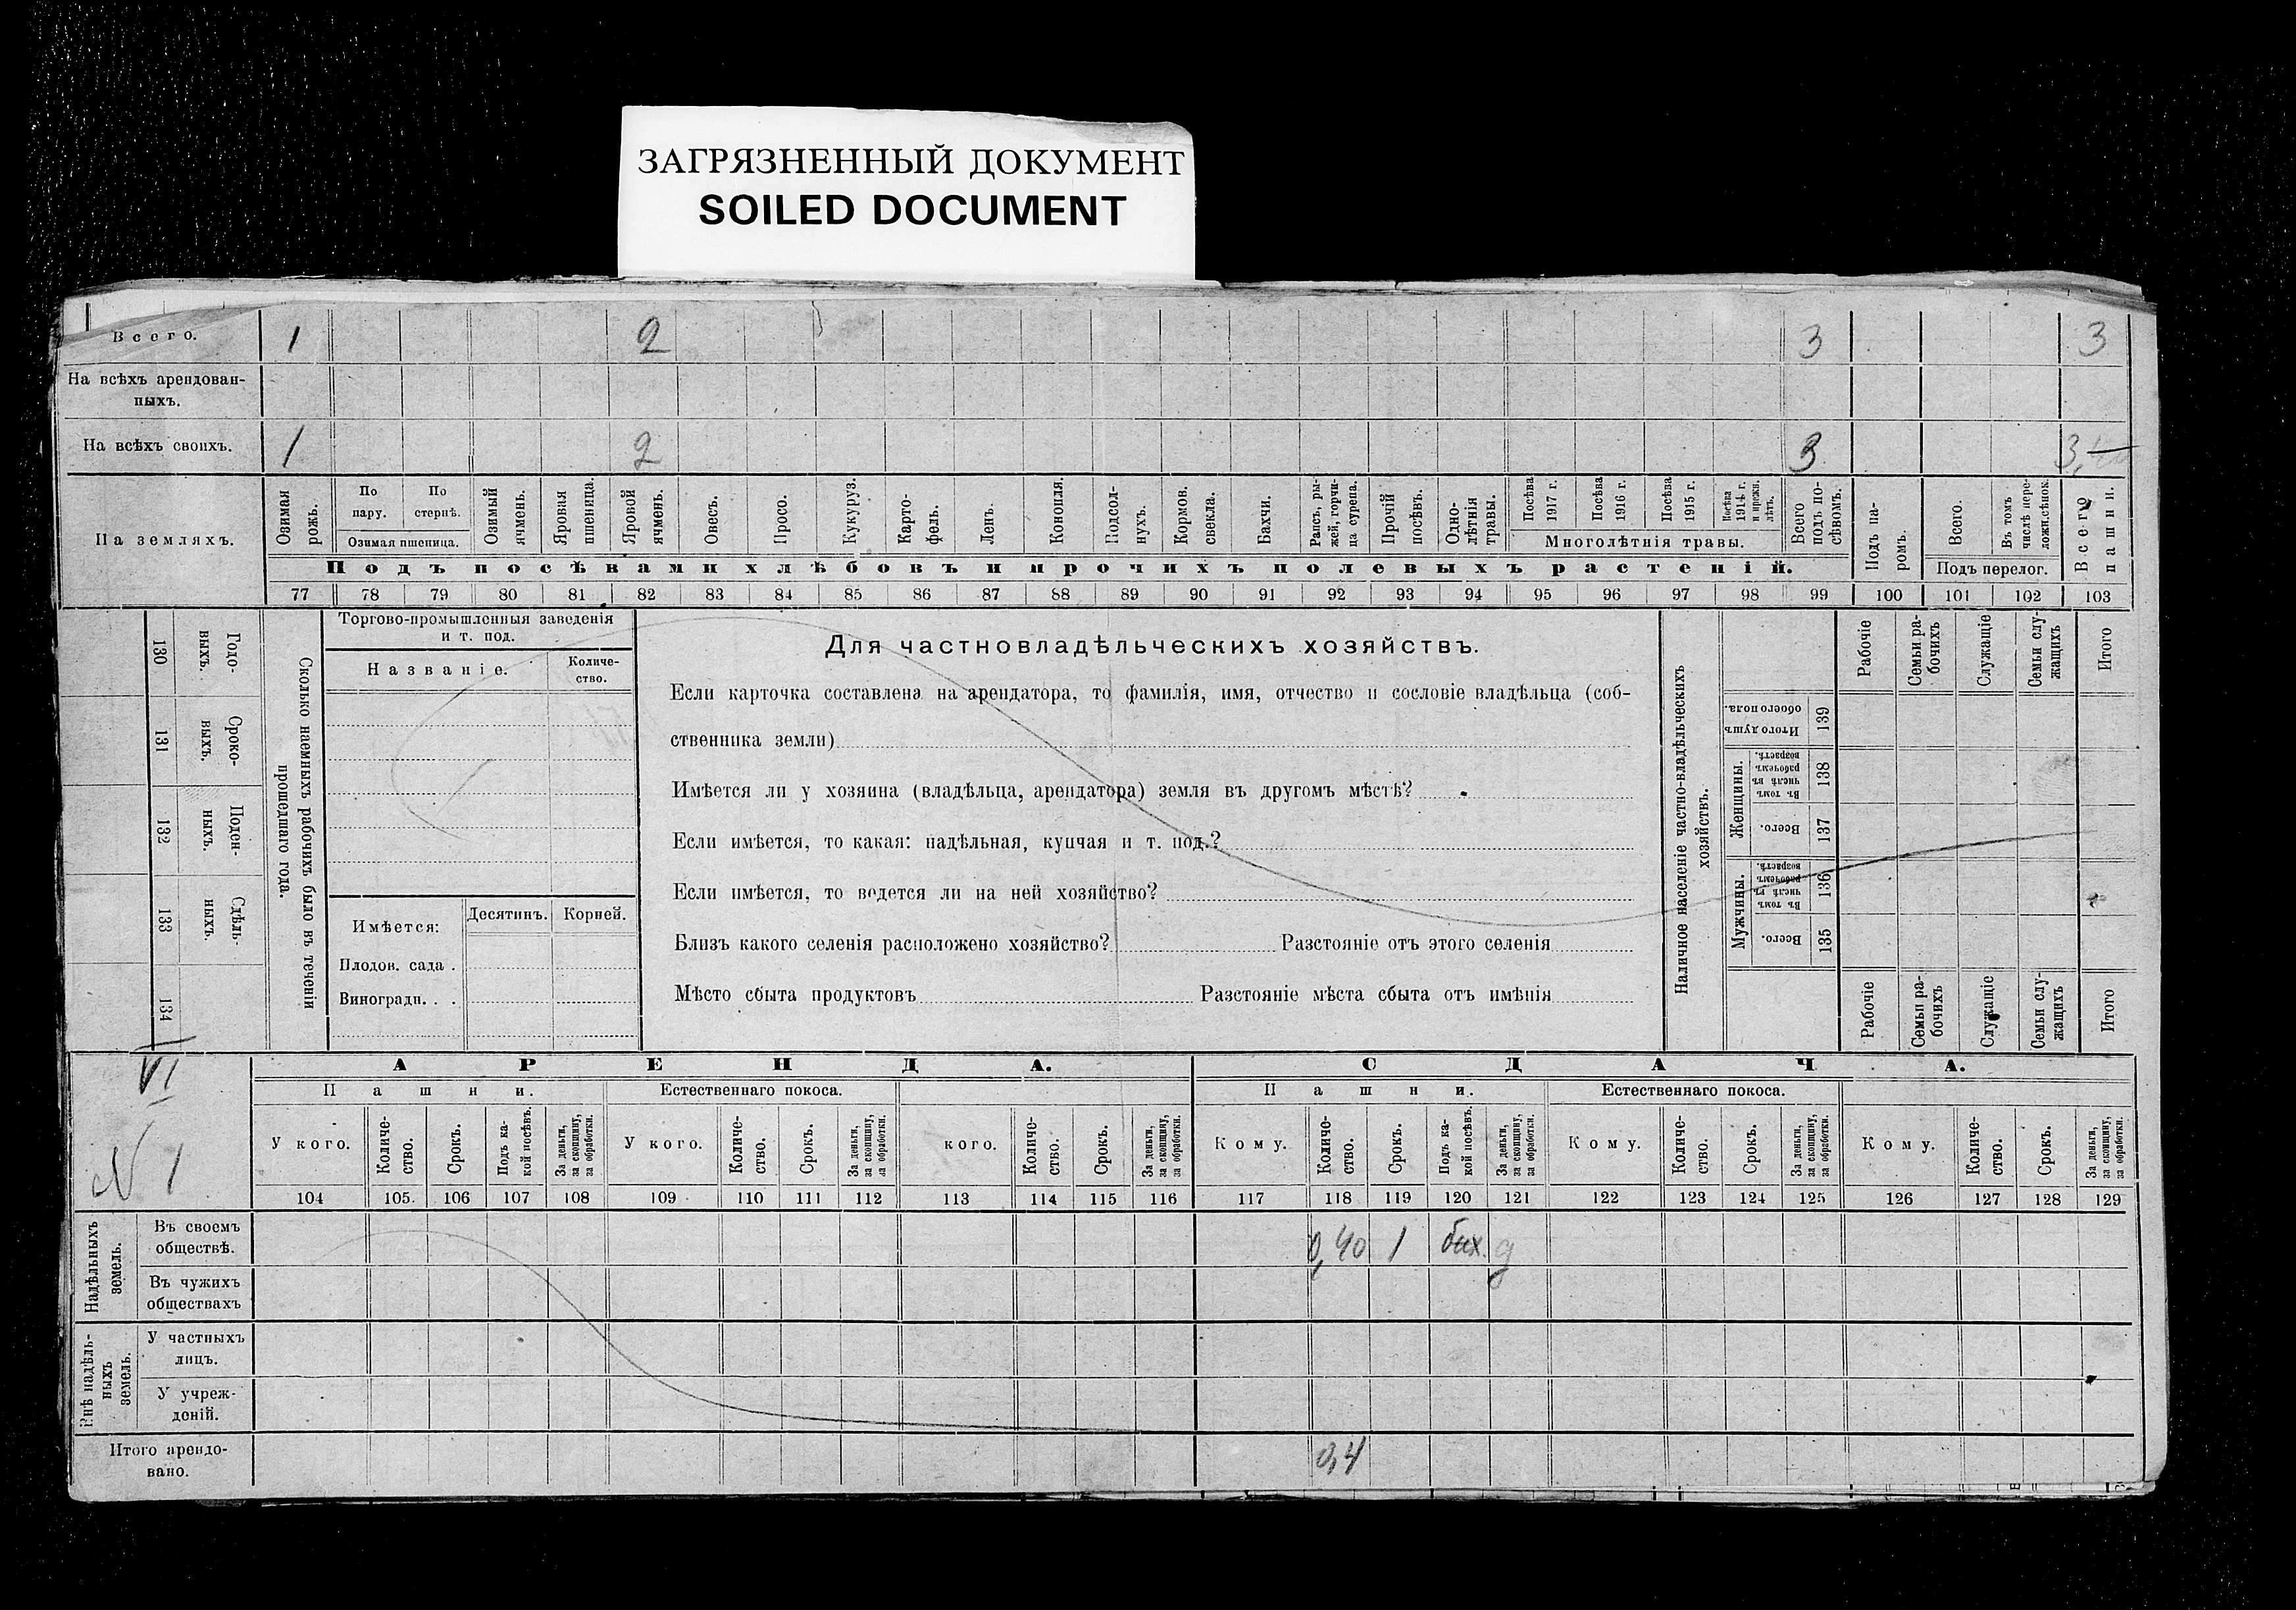 ЗАГРЯЗНЕННЫЙ ДОКУМЕНТ
SOILED DOCUMENT
Всего. 1 2 3 3
На всѣхъ арендован-
ныхъ.
На всѣхъ своихъ. 1 2 3 3,
На земляхъ.
Озимая рожь.
По пару.
По стернѣ.
Озимая пшеница.
Озимый ячмень.
Яровая пшеница.
Яровой ячмень.
Овесъ.
Просо.
Кукуруз.
Карто-
фель.
Ленъ.
Конопля.
Подсол-
нухъ.
Кормов.
свекла.
Бахчи.
Рапсъ, ры-
жей, горчи-
ца сурепа.
Прочій
посѣвъ.
Одно-
лѣтнія
травы.
Посѣва 1917 г.
Посѣва 1916 г.
Посѣва 1915 г.
Посѣва 1914 г. и прежн. лѣтъ.
Многолѣтнія травы.
Всего подъ по-
сѣвомъ.
Подъ па-
ромъ.
Всего.
Въ томъ числѣ пере-
ложн.сѣнок.
Подъ перелог.
Всего пашни.
Подъ посѣвами хлѣбовъ и прочихъ полевыхъ растеній.
77 78 79 80 81 82 83 84 85 86 87 88 89 90 91 92 93 94 95 96 97 98 99 100 101 102 103
130 Годо-
выхъ.
131 Сроко-
выхъ.
132 Поден-
ныхъ.
133 Сдѣль-
ныхъ.
134
Сколько наемныхъ рабочихъ было въ теченіи
прошедшаго года.
Торгово-промышленныя заведенія
и т. под.
Названіе.
Количе-
ство.
Имѣется: Десятинъ. Корней.
Плодов. сада .
Виноградн. . .
Для частновладѣльческихъ хозяйствъ.
Если карточка составлена на арендатора, то фамилія, имя, отчество и сословіе владѣльца (соб-
ственника земли)
Имѣется ли у хозяина (владѣльца, арендатора) земля въ другомъ мѣстѣ?
Если имѣется, то какая: надѣльная, купчая и т. под.?
Если имѣется, то ведется ли на ней хозяйство?
Близъ какого селенія расположено хозяйство? Разстояніе отъ этого селенія
Мѣсто сбыта продуктовъ Разстояніе мѣста сбыта отъ имѣнія
Наличное населеніе частно-владѣльческихъ
хозяйствъ.
Рабочіе
Семьи ра-
бочихъ
Служащіе
Семьи слу-
жащихъ
Итого
Итого душъ обоего пола. 139
Женщины.
Въ томъ числѣ въ рабочемъ возрастѣ. 138
Всего. 137
Мужчины.
Въ томъ числѣ въ рабочемъ возрастѣ. 136
Всего. 135
Рабочіе
Семьи ра-
бочихъ
Служащіе
Семьи слу-
жащихъ
Итого
VI
N 1
АРЕНДА. СДАЧА.
Пашни. Естественнаго покоса. Пашни. Естественнаго покоса.
У кого.
Количе-
ство.
Срокъ.
Подъ ка-
кой посѣвъ.
За деньги,
за скопщину,
за обработки.
У кого.
Количе-
ство.
Срокъ.
За деньги,
за скопщину,
за обработки.
кого.
Количе-
ство.
Срокъ.
За деньги,
за скопщину,
за обработки.
Кому.
Количе-
ство.
Срокъ.
Подъ ка-
кой посѣвъ.
За деньги,
за скопщину,
за обработки.
Кому.
Количе-
ство.
Срокъ.
За деньги,
за скопщину,
за обработки.
Кому.
Количе-
ство.
Срокъ.
За деньги,
за скопщину,
за обработки.
104 105. 106 107 108 109 110 111 112 113 114 115 116 117 118 119 120 121 122 123 124 125 126 127 128 129
Надѣльныхъ
земель.
Въ своемъ
обществѣ. 0,40 1 бах. д
Въ чужихъ
обществахъ
Внѣ надѣль-
ныхъ
земель.
У частныхъ
лицъ.
У учреж-
деній.
Итого арендо-
вано. 0,4